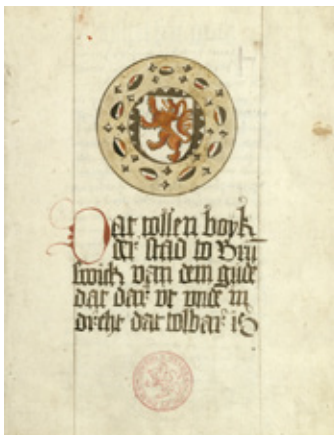 Dat tollen boyk
der stad to Bru
swick van dem gude
dat dar vt vnde in
driht dat tolbar is